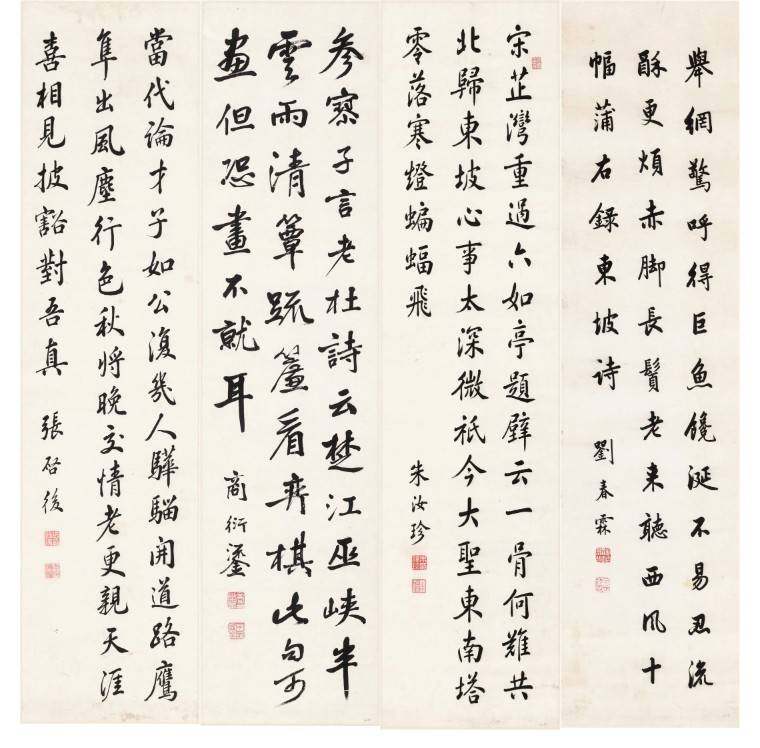 舉網驚呼得巨魚饞涎不易忍流
酥更煩赤脚長鬚老来聽西風十
幅蒲右錄東坡诗 劉春霖
宋芷灣重過六如亭題壁云一骨何難共
北歸東坡心事太深微祇今大聖東南塔
零落寒燈蝙蝠飛 朱汝珍
參寥子言老杜詩云楚江巫峽半
雲雨清簟疏簾看弈棋此句可
畫但恐畫不就耳 商衍鎏
當代論才子如公復幾人驊騮開道路鷹
隼出風塵行色秋將晚交情老更親天涯
喜相見披豁對吾真 張啓後